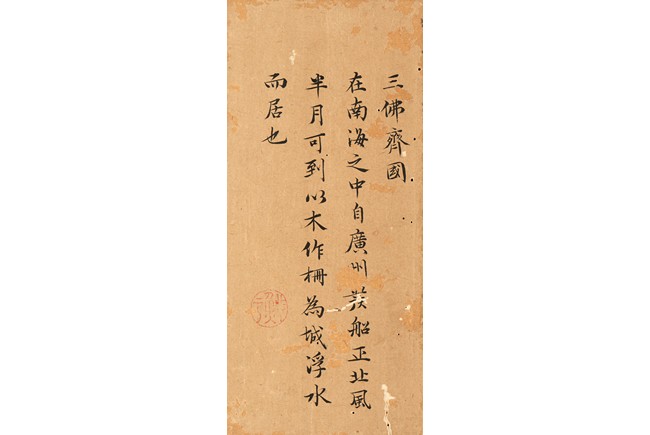 三佛齊國
在南海之中自廣州發船正北風
半月可到以木作柵為城浮水
而居也